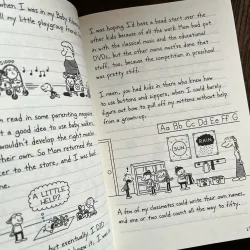 when I was in my Baby
ll my little playgroup friend
read in some parenting magazi
t a good idea to use baby walke
wouldn't develop the right musc
their own. So Mom returned the
er to the store, and I was bac
ne.
A LITTLE
HELP?
but eventually I DID
I was hoping I'd have a head start over the
other kids because of all the work Mom had put
in with the classical music and the educational
DVDs, but the other moms must've done that
stuff, too, because the competition in preschool
was pretty stiff.
I mean, you had kids in there who knew how
to use buttons and zippers, when I could barely
figure out how to pull off my mittens without help
from a grown-up.
Aa Bb Cc Dd Ee Ff G
SUN
RAIN
A few of my classmates could write their own names,
and one or two could count all the way to fifty.